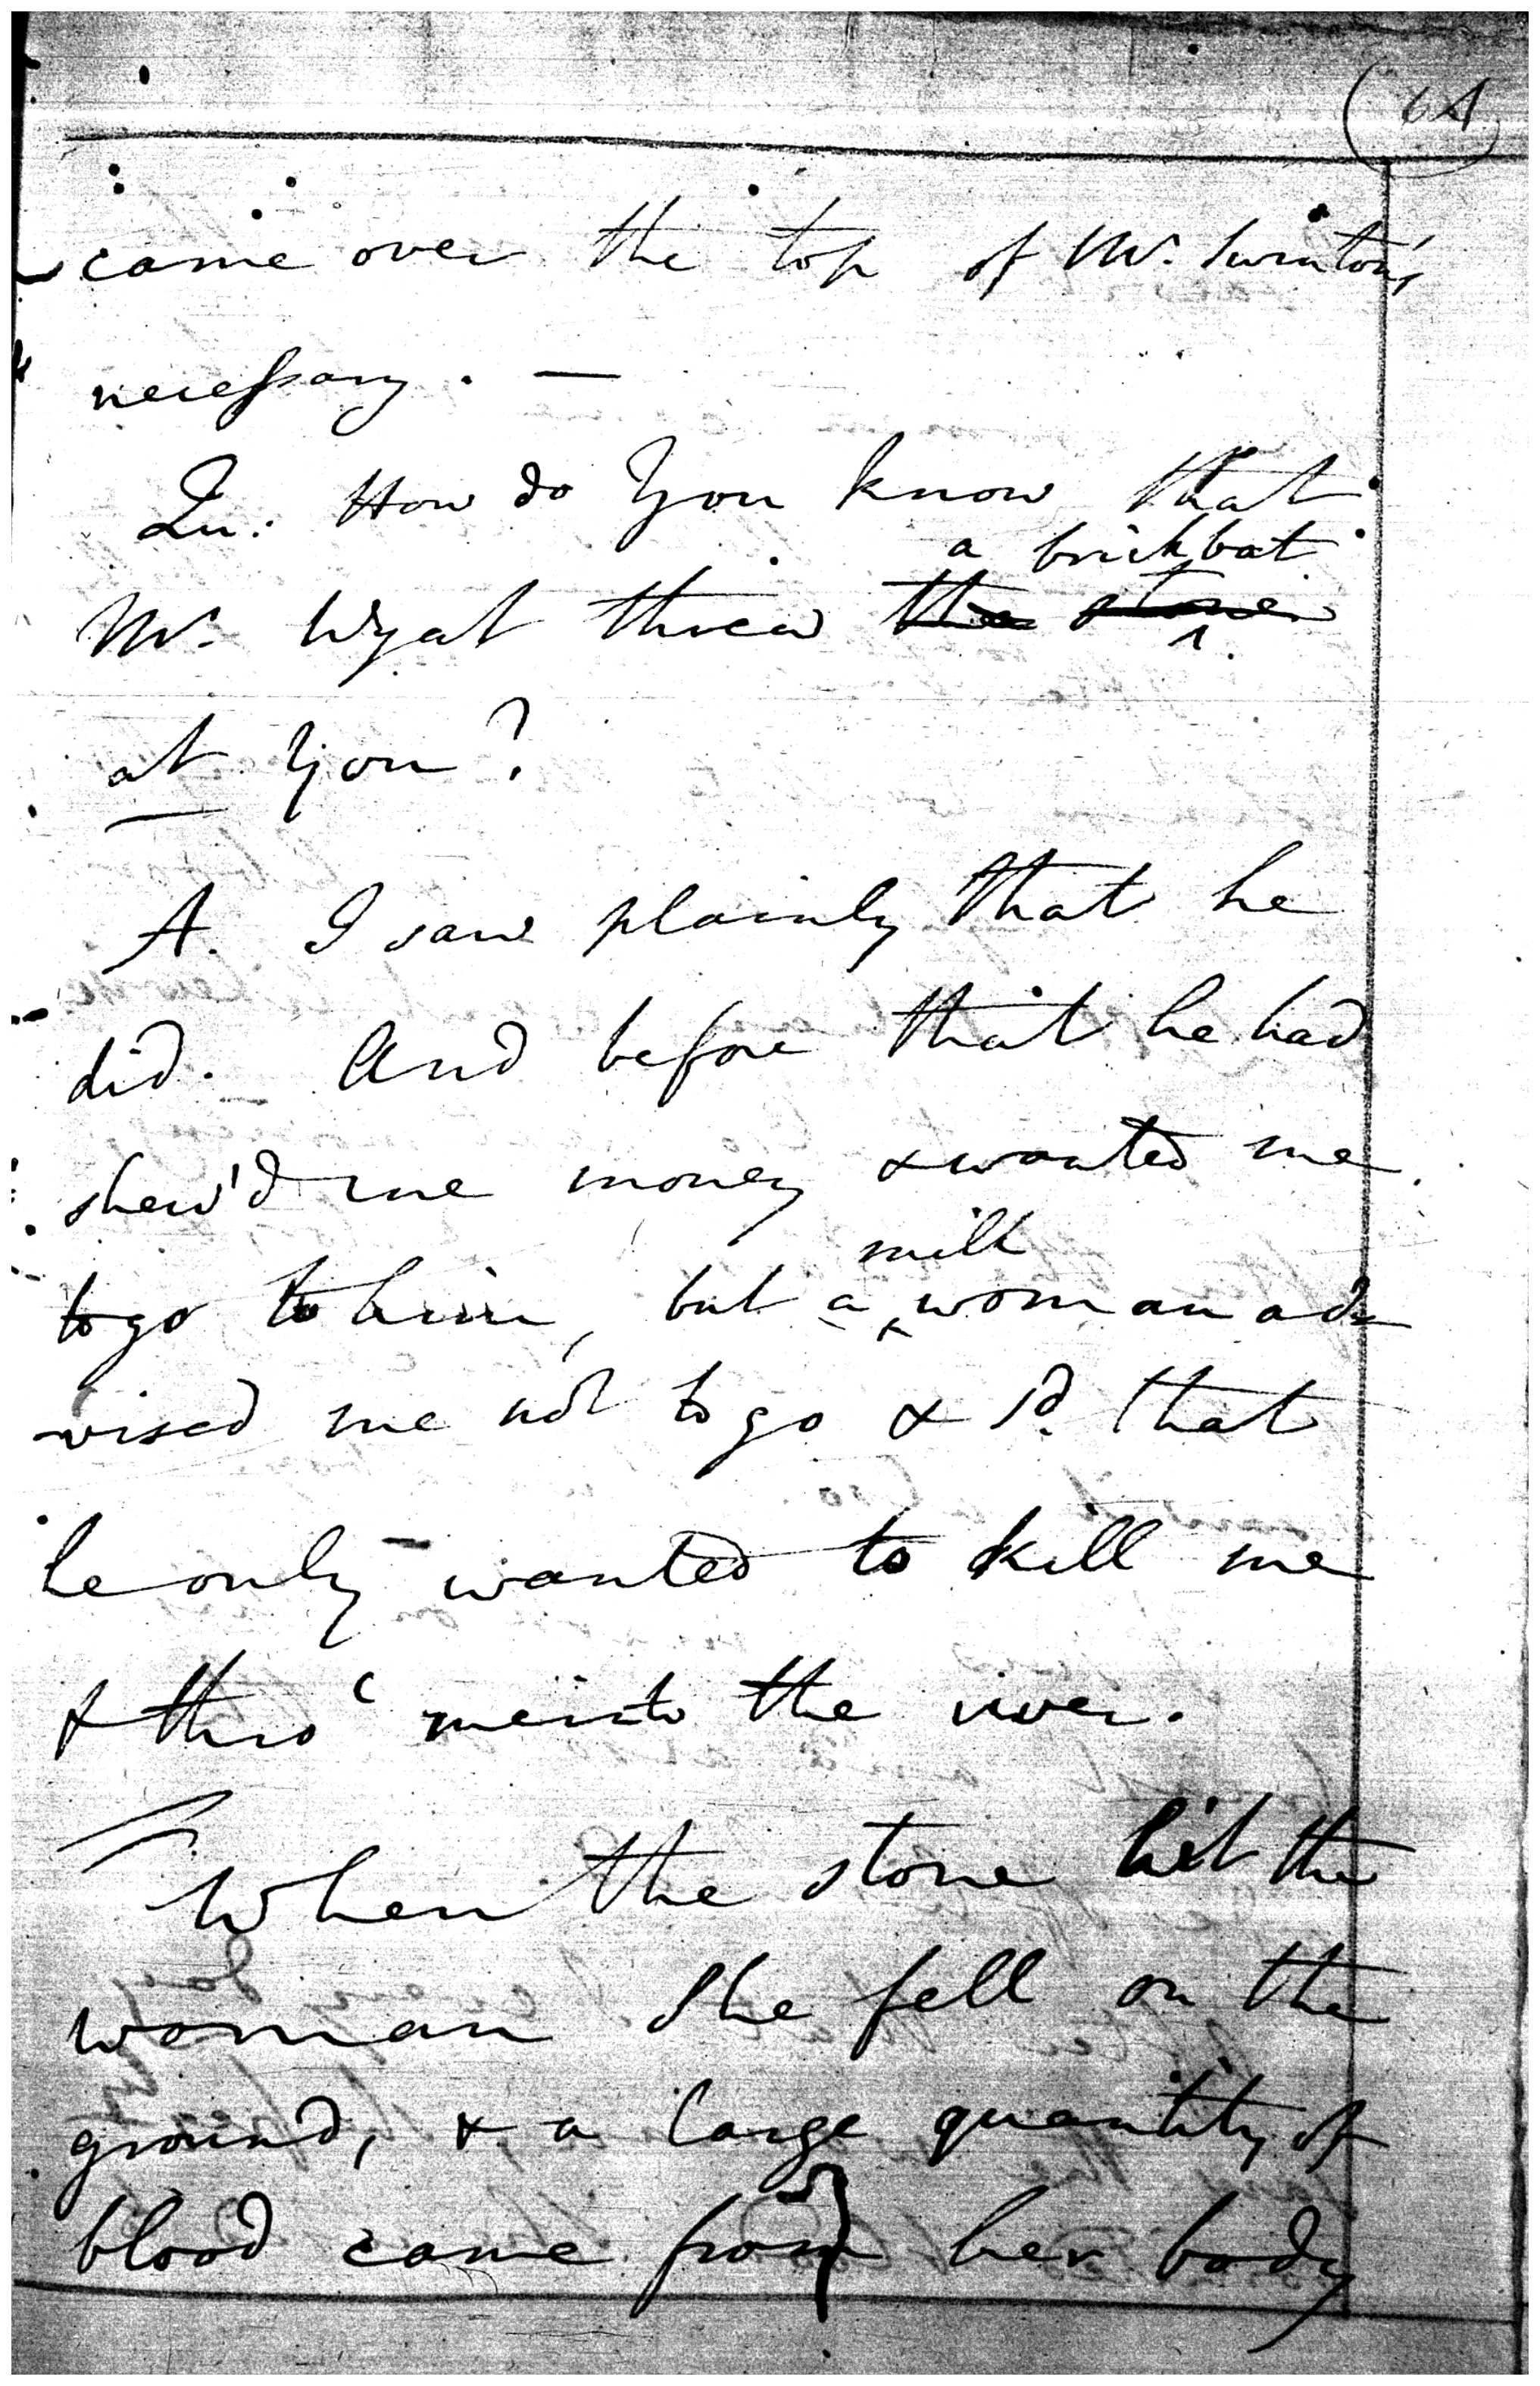 64
came over the top of Mr. Swinton's
necessary. —
Qu: How do you know that
a brickbat
Mr. Wyat threw the stone
at you?
A. I saw plainly that he
did. And before that he had
shew'd me money & wanted me
milk
to go to him, but a woman ad-
vised me not to go & sd. that
he only wanted to kill me
& thro' me into the river.
When the stone hit the
woman she fell on the
ground, & a large quantity of
blood came from her body